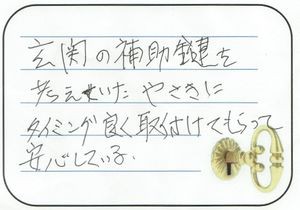 玄関の補助鍵を
考えていた やさきに
タイミング良く取付けてもらって
安心している.